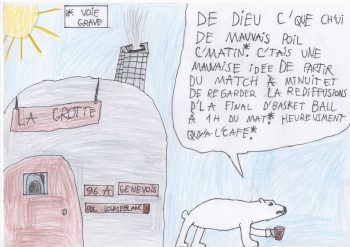 * VOIE
GRAVE
DE DIEU C'QUE CHUI
DE MAUVAIS POIL
C'MATIN*. C'TAIS UNE
MAUVAISE IDÉE DE PARTIR
DU MATCH À MINUIT ET
DE REGARDER LA REDIFFUSIONS
D'LA FINAL D'BASKET BALL
À 1H DU MAT* HEUREUSMENT
QU'YA L'CAFÉ*.
LA GROTTE
96 A GENEVOIS
LOURSEBLANC